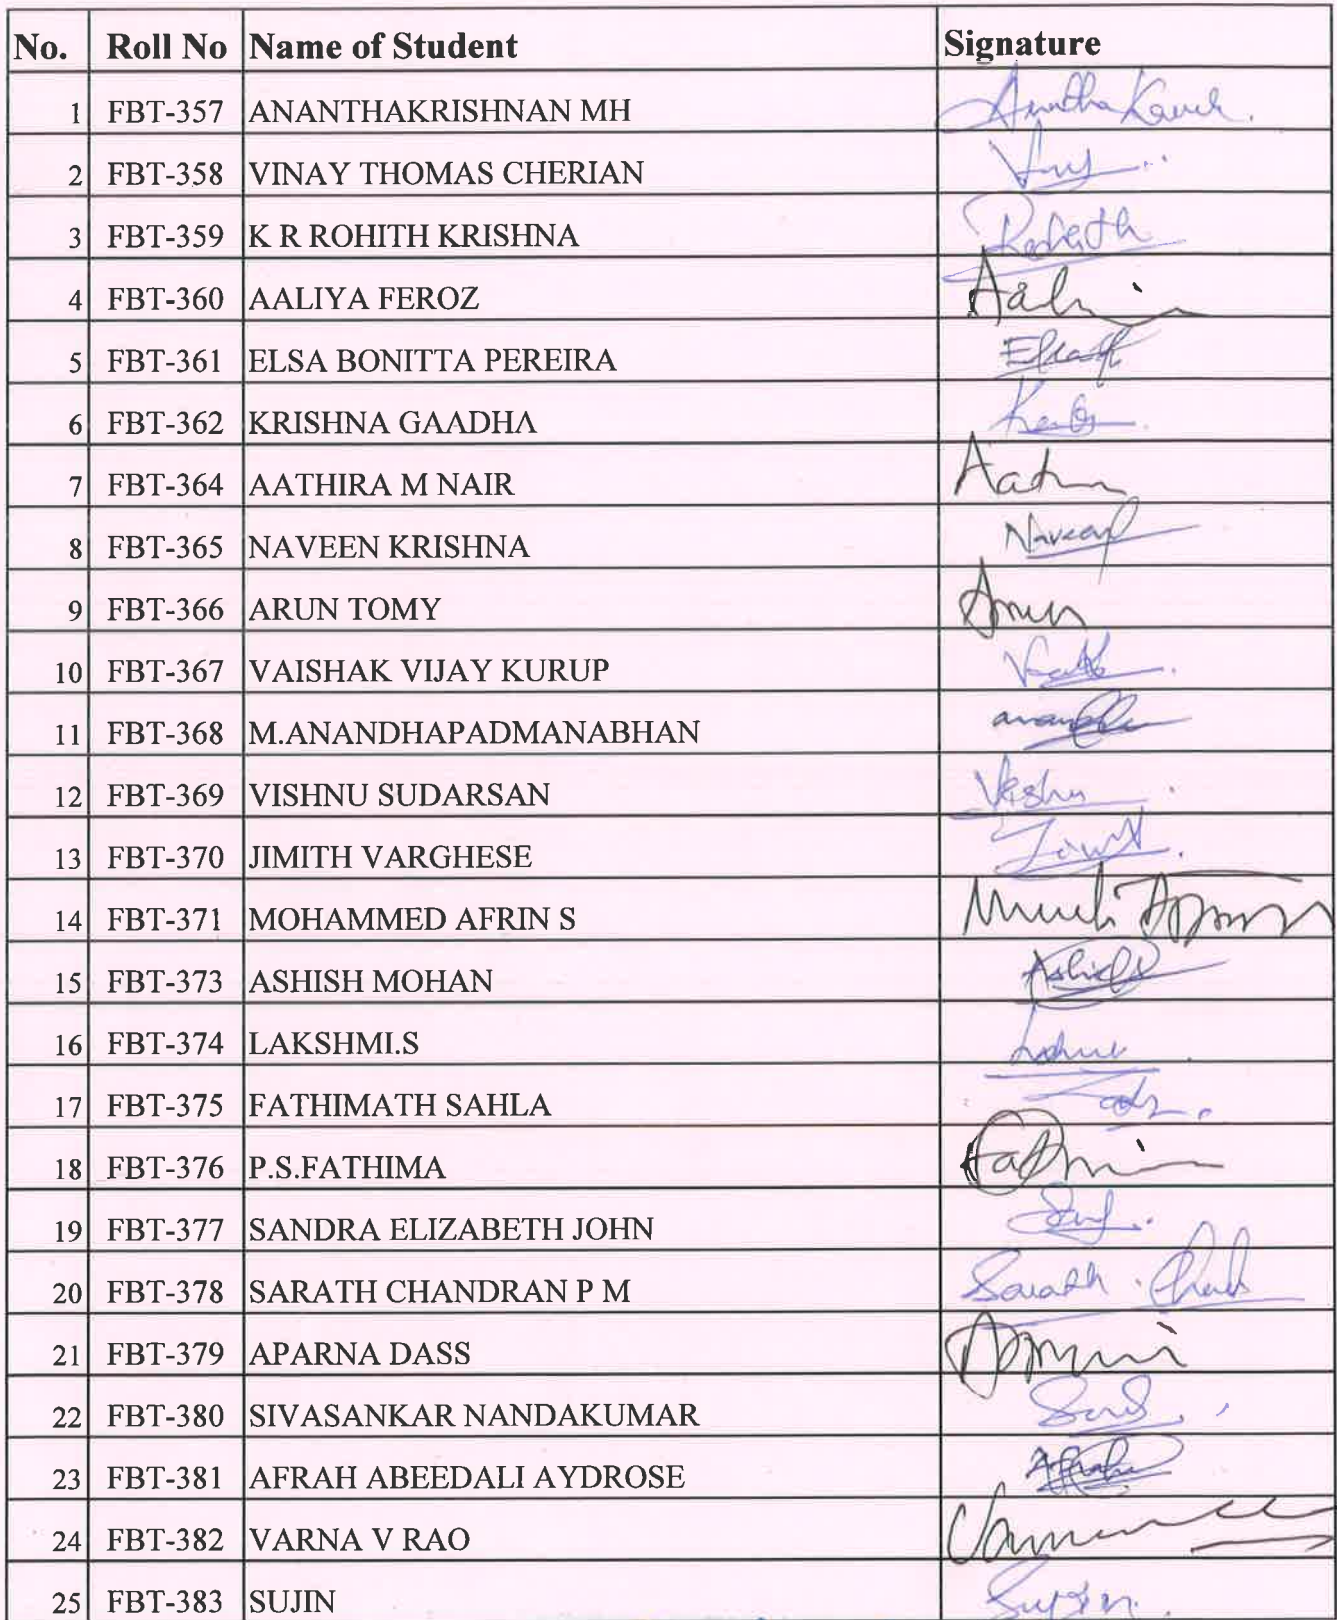 No. Roll No Name of Student Signature
1 FBT-357 ANANTHAKRISHNAN MH
2 FBT-358 VINAY THOMAS CHERIAN
3 FBT-359 K R ROHITH KRISHNA
4 FBT-360 AALIYA FEROZ
5 FBT-361 ELSA BONITTA PEREIRA
6 FBT-362 KRISHNA GAADHA
7 FBT-364 AATHIRA M NAIR
8 FBT-365 NAVEEN KRISHNA
9 FBT-366 ARUN TOMY Arun
10 FBT-367 VAISHAK VIJAY KURUP
11 FBT-368 M.ANANDHAPADMANABHAN
12 FBT-369 VISHNU SUDARSAN Vishnu
13 FBT-370 JIMITH VARGHESE
14 FBT-371 MOHAMMED AFRIN S
15 FBT-373 ASHISH MOHAN
16 FBT-374 LAKSHMI.S
17 FBT-375 FATHIMATH SAHLA
18 FBT-376 P.S.FATHIMA
19 FBT-377 SANDRA ELIZABETH JOHN
20 FBT-378 SARATH CHANDRAN P M Sarath
21 FBT-379 APARNA DASS
22 FBT-380 SIVASANKAR NANDAKUMAR
23 FBT-381 AFRAH ABEEDALI AYDROSE
24 FBT-382 VARNA V RAO
25 FBT-383 SUJIN Sujin